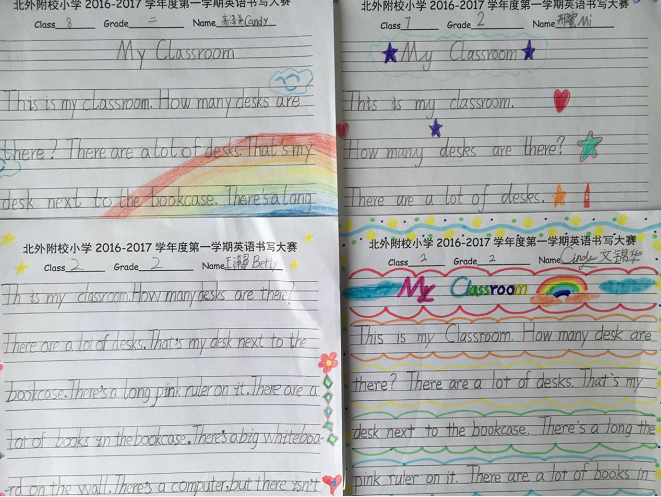 北外附校小学 2016-2017 学年度第一学期英语书写大赛
Class 8 Grade 二 Name Candy
My Classroom
This is my classroom. How many desks are
there? There are a lot of desks. That's my
desk next to the bookcase. There's a long
北外附校小学 2016-2017 学年度第一学期英语书写大赛
Class 7 Grade 2 Name Mi
My Classroom
This is my classroom.
How many desks are there?
There are a lot of desks.
北外附校小学 2016-2017 学年度第一学期英语书写大赛
Class 2 Grade 2 Name Betty
Th is is my classroom. How many desks are there?
There are a lot of desks. That's my desk next to the
bookcase. There's a long pink ruler on it. There are a
lot of books in the bookcase. There's a big whiteboa-
rd on the wall. There's a computer, but there isn't
北外附校小学 2016-2017 学年度第一学期英语书写大赛
Class 2 Grade 2 Name Cindy
My Classroom
This is my Classroom. How many desk are
there? There are a lot of desks. That's my
desk next to the bookcase. There's a long the
pink ruler on it. There are a lot of books in